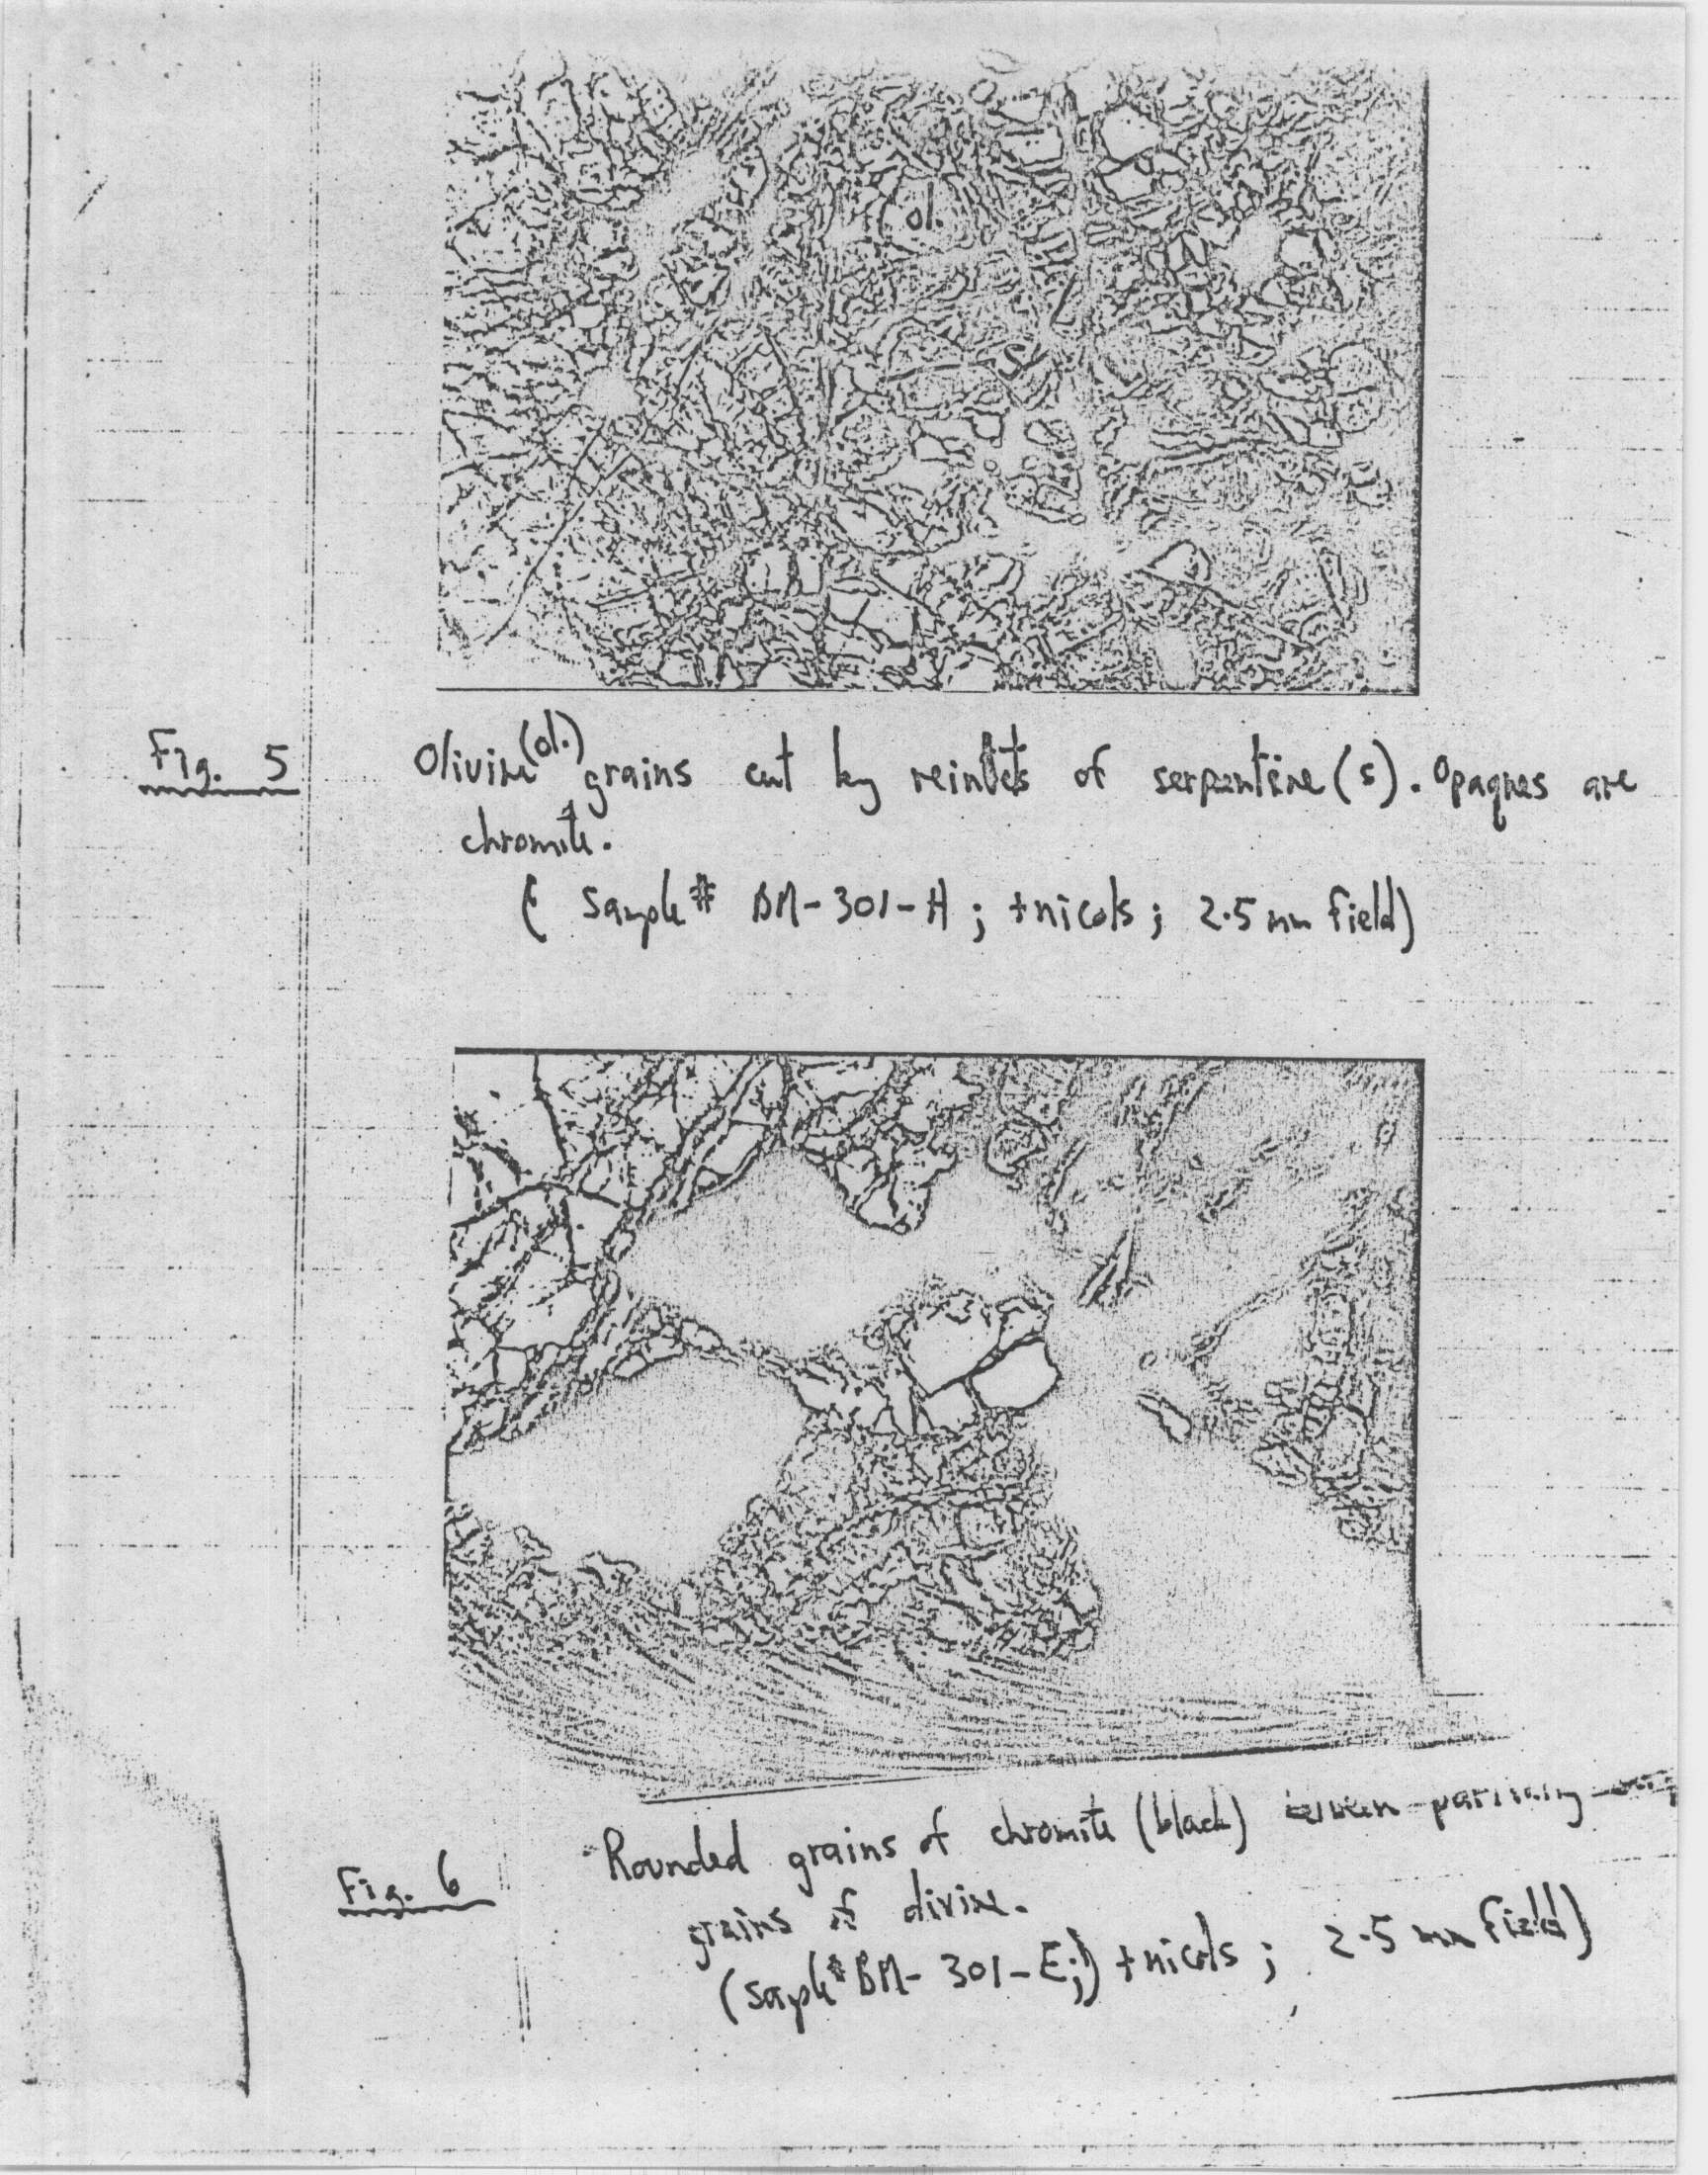 ol.
S
Fig. 5
Olivine (ol.) grains cut by veinlets of serpentine (s). Opaques are
chromite.
( Sample # BM-301-H ; +nicols ; 2.5 mm field)
Fig. 6
Rounded grains of chromite (black) between partially
grains of olivine.
(sample # BM-301-E;) +nicols ; 2.5 mm field)